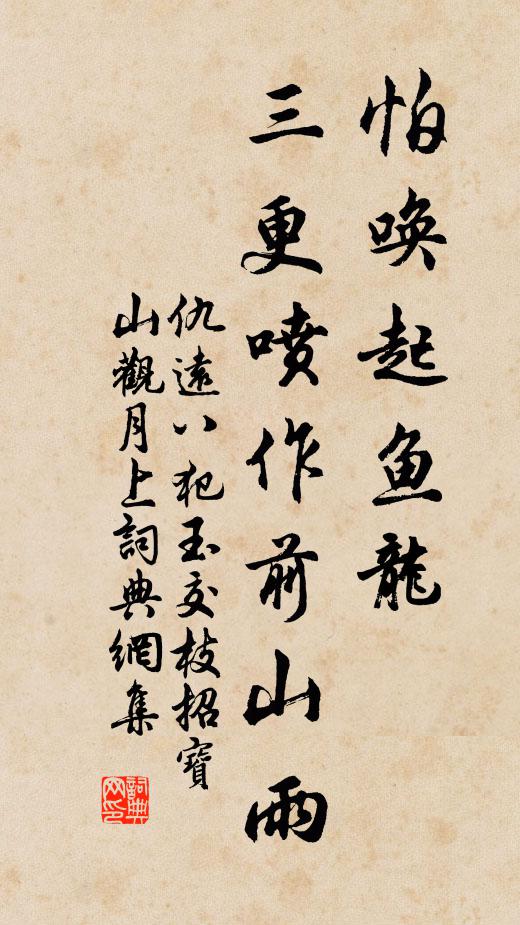 怕唤起鱼龍
三更喷作前山雨
仇遠八犯玉交枝招寶
山觀月上詞典網集
詞典
网印